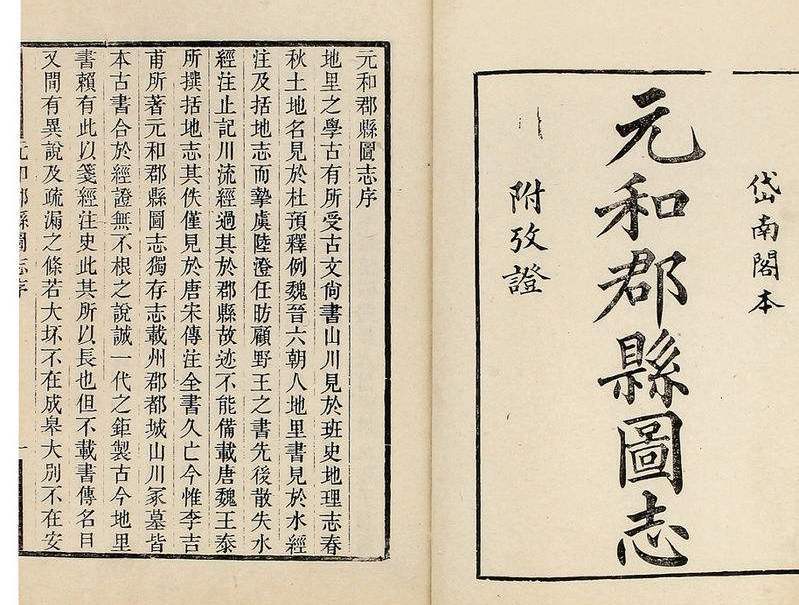 岱南閣本
元和郡縣圖志
附攷證
元和郡縣圖志序
地里之學古有所受古文尙書山川見於班史地理志春
秋土地名見於杜預釋例魏晉六朝人地里書見於水經
注及括地志而摯虞陸澄任昉顧野王之書先後散失水
經注止記川流經過其於郡縣故迹不能備載唐魏王泰
所撰括地志其佚僅見於唐宋傳注全書久亡今惟李吉
甫所著元和郡縣圖志獨存志載州郡都城山川冢墓皆
本古書合於經證無不根之說誠一代之鉅製古今地里
書賴有此以箋經注史此其所以長也但不載書傳名目
又間有異說及疏漏之條若大坏不在成皋大別不在安
元和郡縣圖志序
一